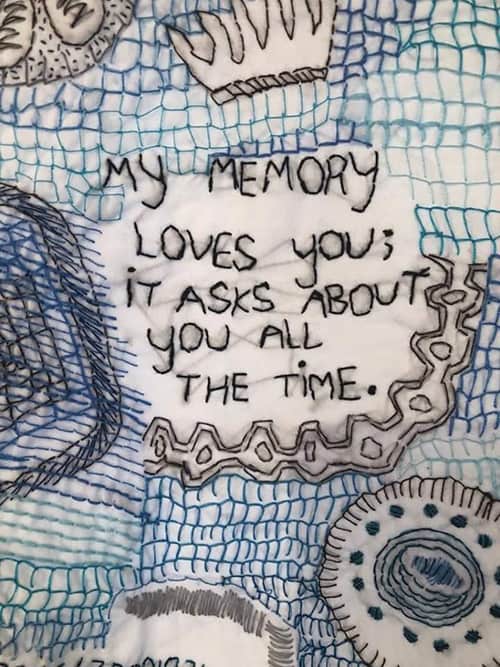 MY MEMORY
LOVES YOU;
iT ASKS ABOUT
YOU ALL
THE TiME.